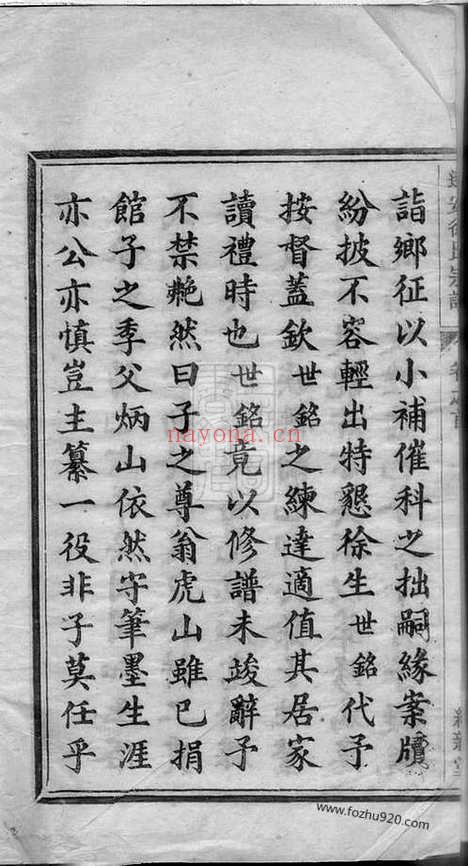 詣鄉征以小補催科之拙嗣緣案牘
紛披不容輕出特懇徐生世銘代予
按督蓋欽世銘之練達適值其居家
讀禮時也世銘竟以修譜未竣辭予
不禁艴然曰子之尊翁虎山雖已捐
館子之季父炳山依然守筆墨生涯
亦公亦慎豈主纂一役非子莫任乎
nayona.cn
www.fozhu920.com